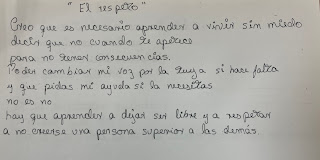 " El respeto"
Creo que es necesario aprender a vivir sin miedo
decir que no cuando te apetece
para no tener consecuencias.
Poder cambiar mi voz por la tuya si hace falta
y que pidas mi ayuda si la necesitas
no es no
hay que aprender a dejar ser libre y a respetar
a no creerse una persona superior a las demás.